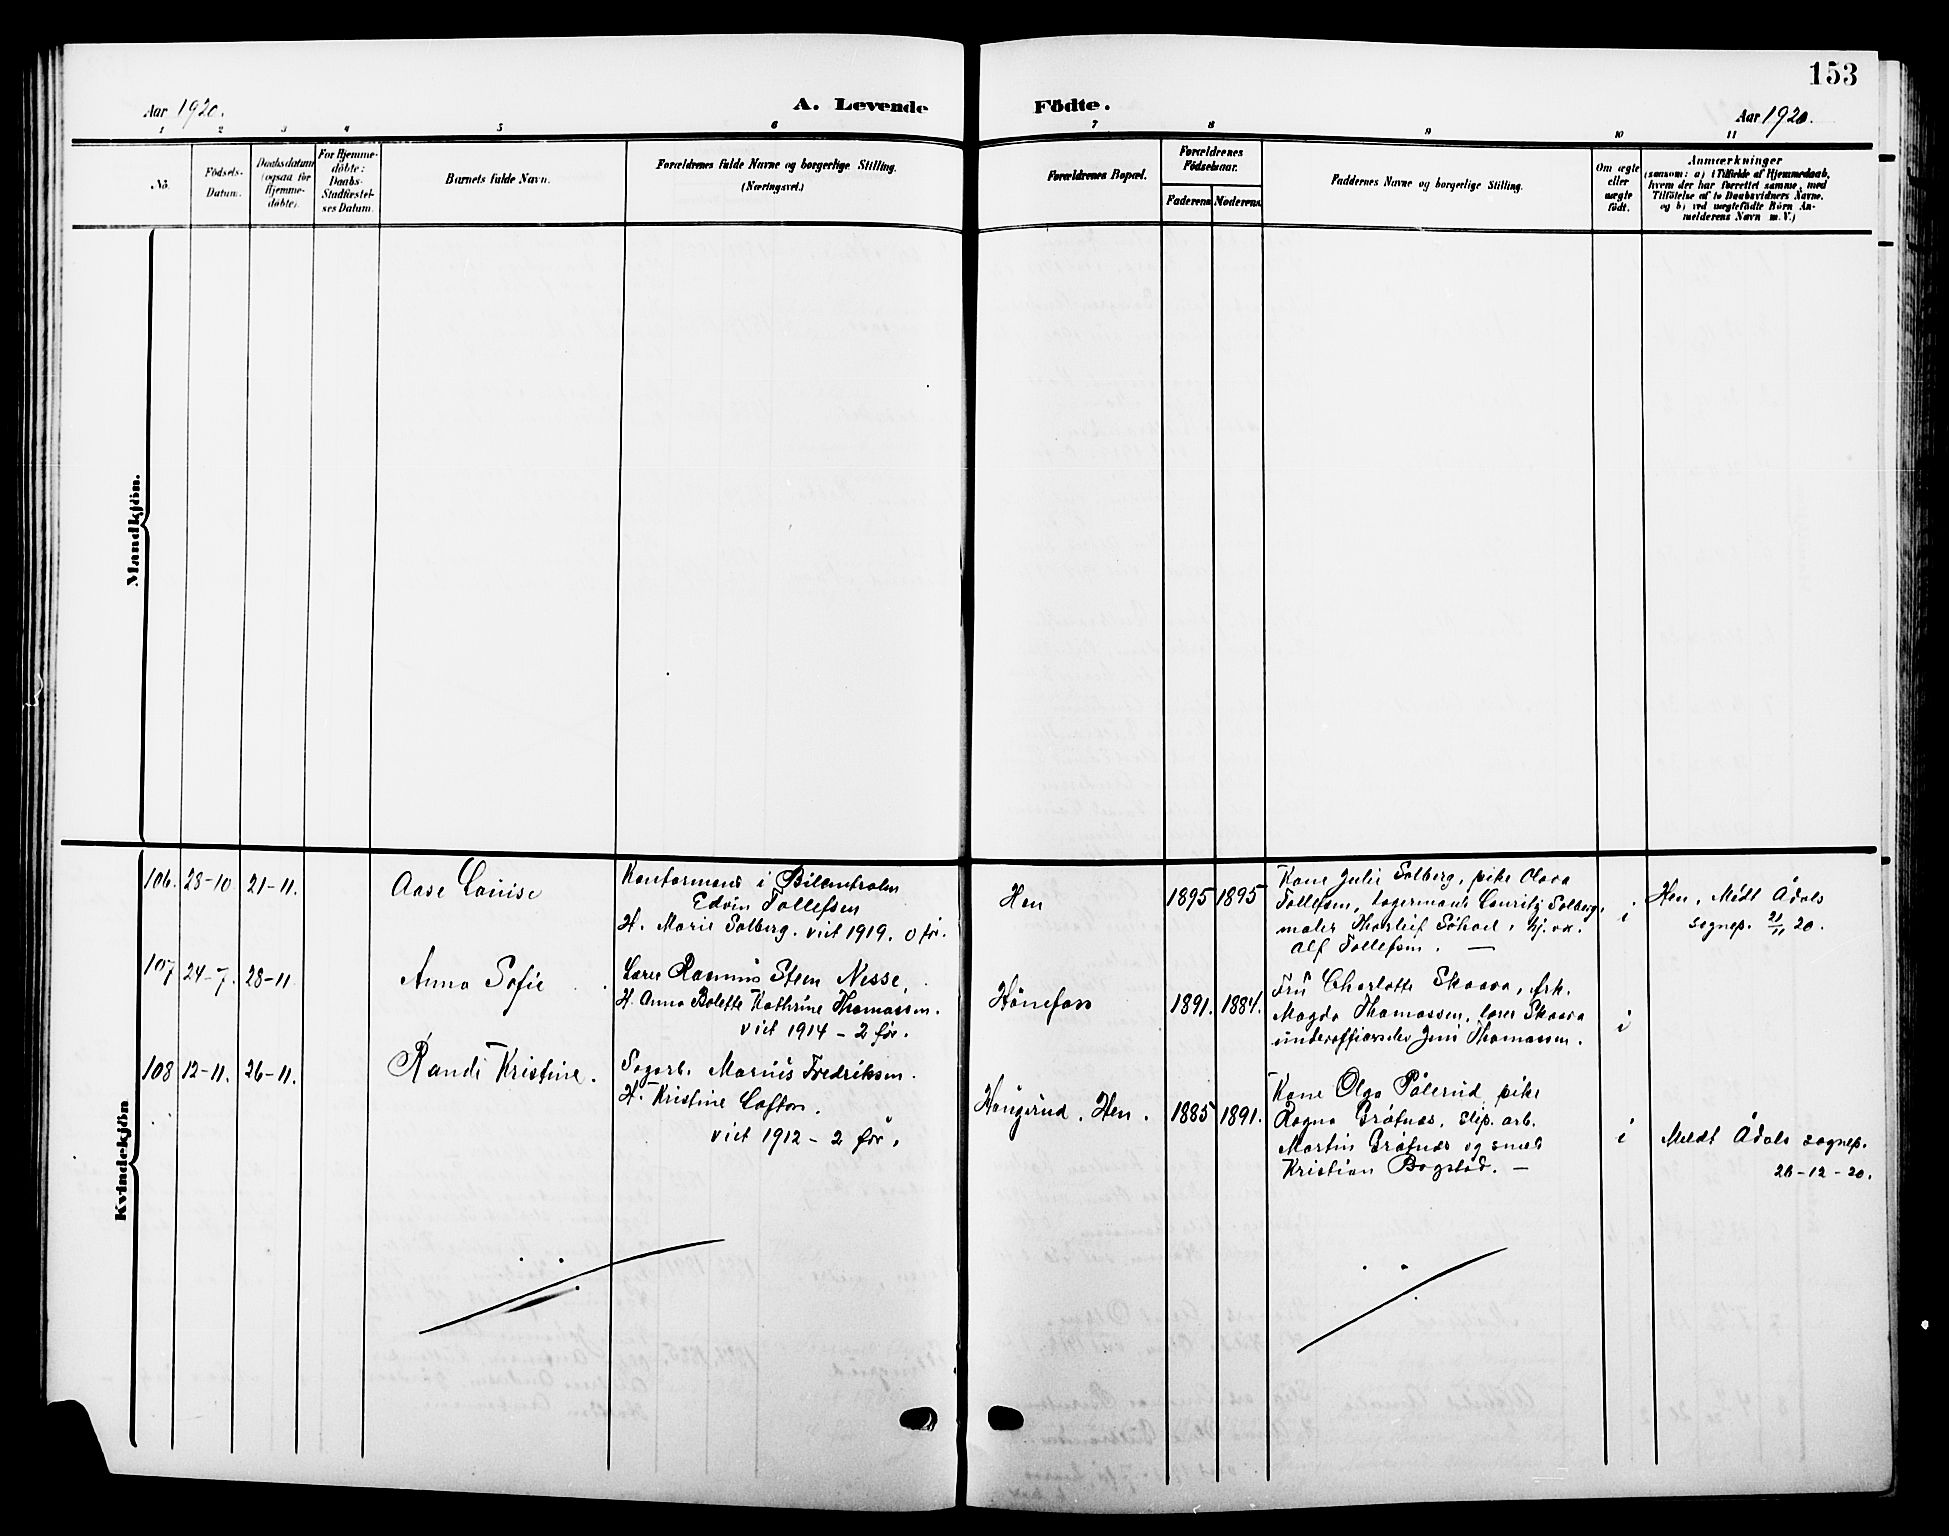 153
Aar 1920.
A. Levende Födte.
Aar 1920.
1 2 3 4 5 6 7 8 9 10 11
No.
Födsels-
Datum.
Daabsdatum
(ogsaa for
Hjemme-
døbte).
For Hjemme-
döbte:
Daabs-
Stadfæstel-
ses Datum.
Barnets fulde Navn.
Forældrenes fulde Navne og borgerlige Stilling.
(Næringsvei.)
Forældrenes Bopæl.
Forældrenes
Födselsaar.
Faderens Moderens
Faddernes Navne og borgerlige Stilling.
Om ægte
eller
uægte
født.
Anmærkninger
(saasom: a) i Tilfælde af Hjemmedaab,
hvem der har forrettet samme, med
Tilföielse af to Daabsvidners Navne,
og b) ved uægtefödte Börn An-
melderens Navn m. V.)
Mandkjön.
Kvindekjön
106. 28-10 21-11.
Aase Louise
Kontormand i Bilcentralen
Edvin Tollefsen
H. Marie Solberg. viet 1919. 0 før.
Hen
1895 1895
Kone Julie Solberg, pike Olava
Tollefsen, lagermand Lauritz Solberg,
maler Thorleif Söhoel, hj.vx.
Alf Tollefsen. —
i
Hen, Meldt Ådals
sognep. 21/11 20.
107 24-7. 28-11
Anna Sofie
Lærer Rasmus Steen Nesse,
H. Anna Bolette Kathrine Thomassen.
viet 1914 - 2 før.
Hönefoss
1891. 1884.
Fru Charlotte Skaara, frk.
Magda Thomassen, lærer Skaara
underofficerselev Jens Thomassen.
i
108 12-11. 26-11.
Randi Kristine.
Sagarb. Marius Fredriksen.
H. Kristine Lofton.
viet 1912 - 2 før.
Haugerud. Hen.
1885 1891.
Kone Olga Pålerud, pike
Ragna Gråtnes, slip. arb.
Martin Gråtnes og smed
Kristian Bogstad. —
i
Meldt Ådals sognep.
26-12-20.